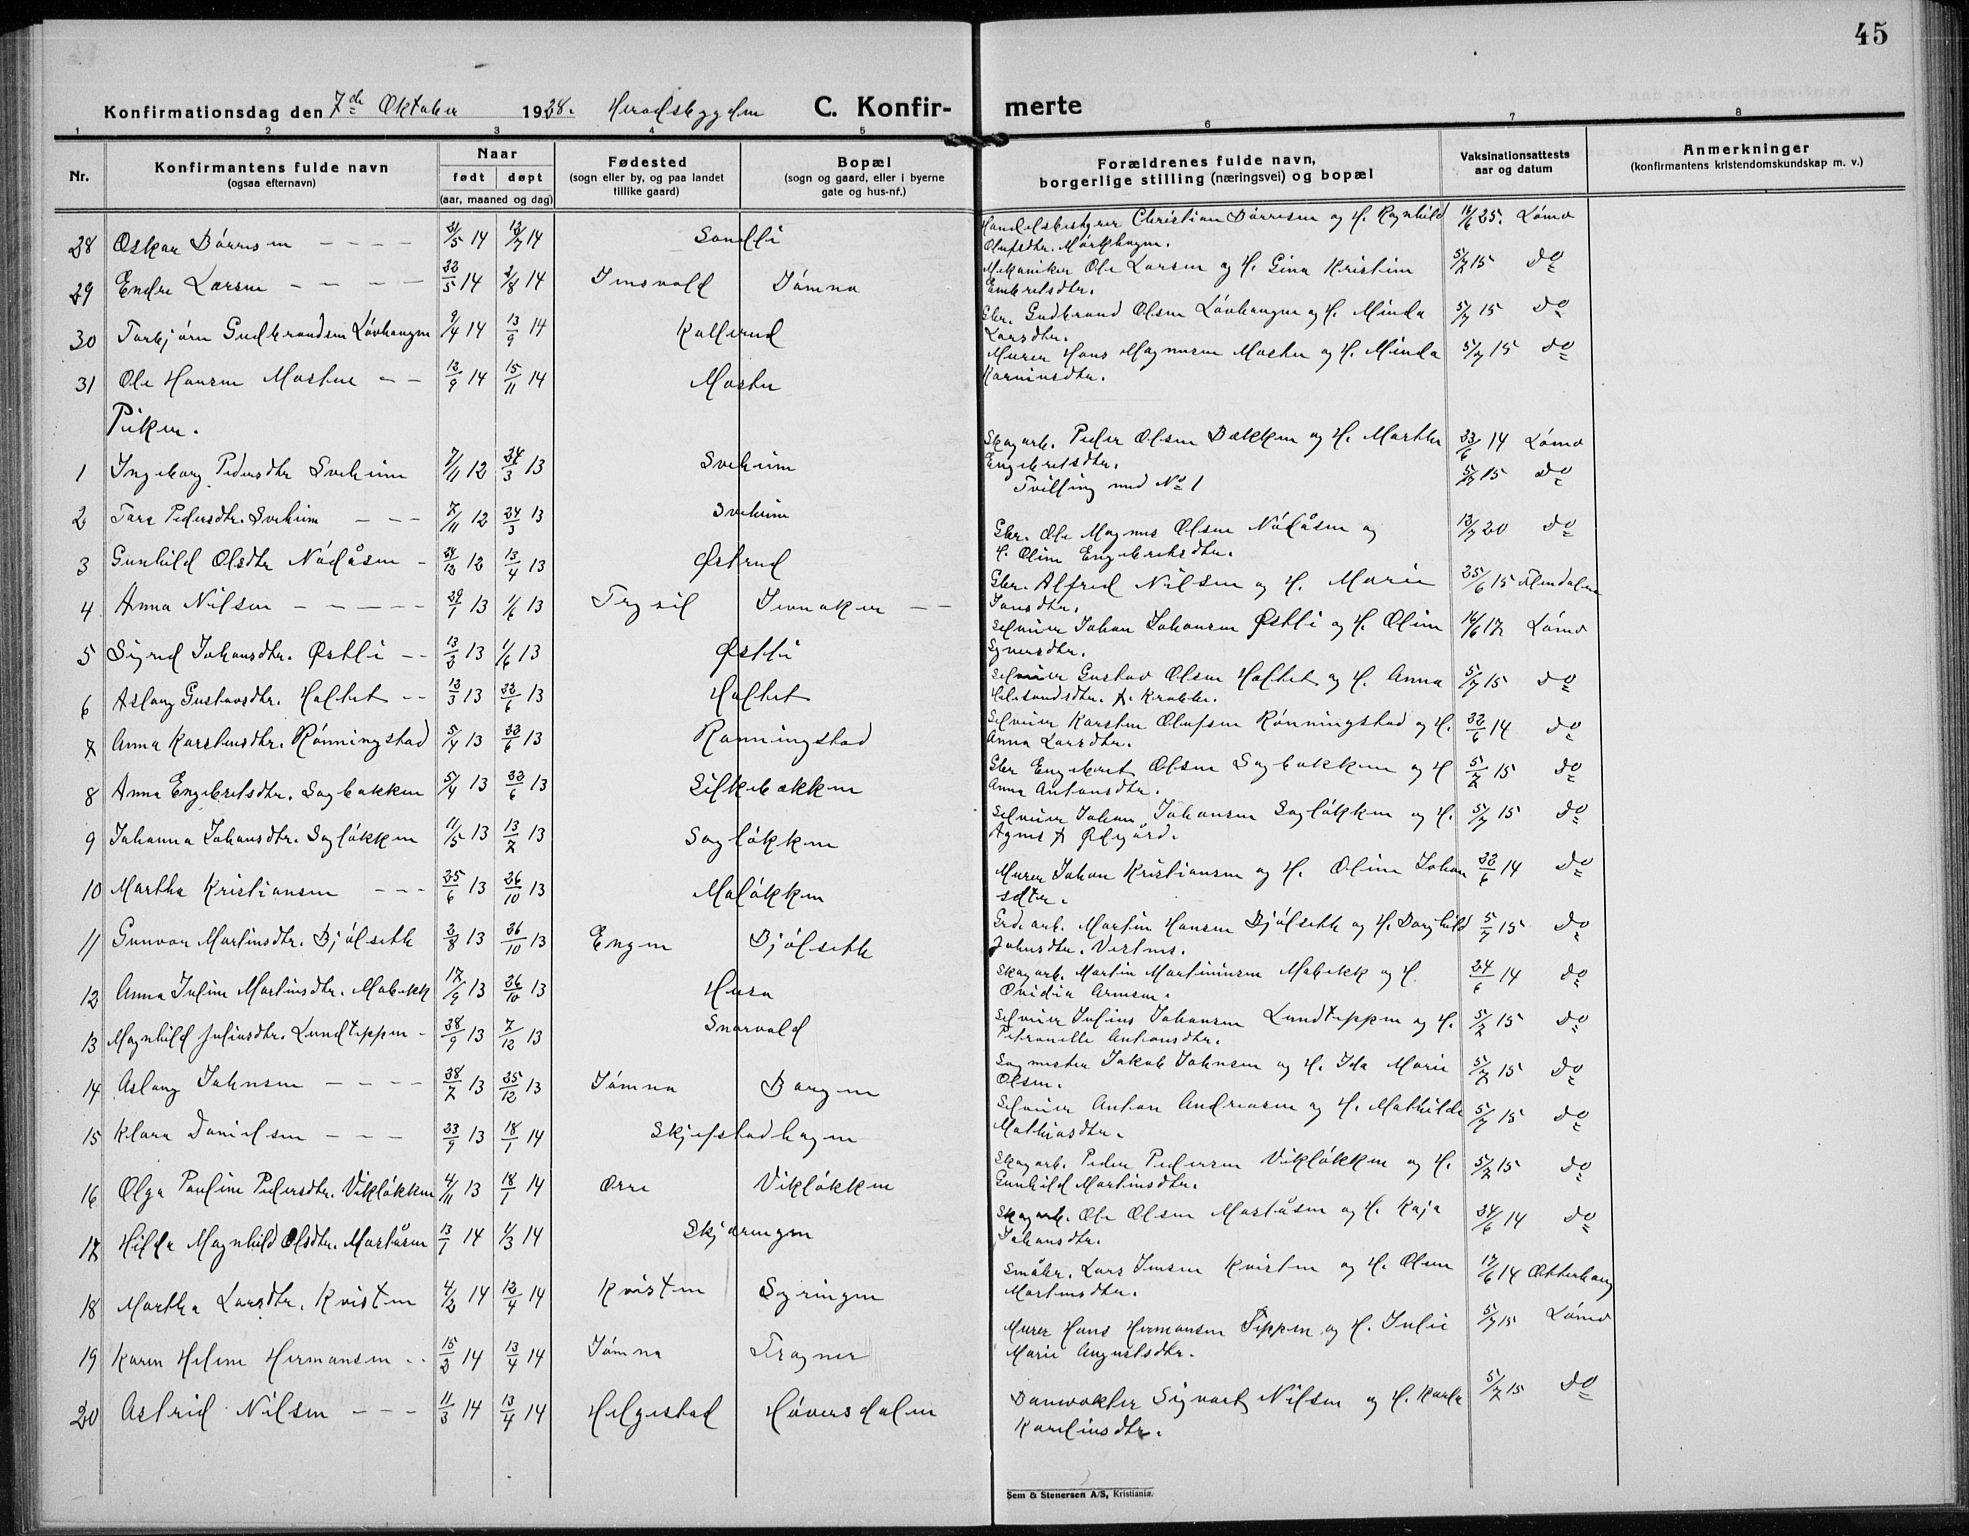 45
Konfirmationsdag den 7de Oktober 1928. Heradsbygden C. Konfirmerte
1 2 3 4 5 6 7 8
Nr. Konfirmantens fulde navn (ogsaa efternavn) Naar født døpt (aar, maaned og dag) Fødested (sogn eller by, og paa landet tillike gaard) Bopæl (sogn og gaard, eller i byerne gate og hus-nf.) Forældrenes fulde navn, borgerlige stilling (næringsvei) og bopæl Vaksinationsattests aar og datum Anmerkninger (konfirmantens kristendomskundskap m. v.)
28 Oskar Børresen 31/5 14 12/7 14 Sandli Handelsbestyrer Christian Børresen og H. Ragnhild Olufsdtr. Mørkhagen. 16/6 25. Lømo
29 Endre Larsen 22/5 14 2/8 14 Imsvold Jømna Mekaniker Ole Larsen og H. Gina Kristine Embretsdtr. 5/7 15 do
30 Torbjørn Gudbrandsen Løvhaugen 9/4 14 13/9 14 Kallerud Gbr. Gudbrand Olsen Løvhaugen og H. Minda Larsdtr. 5/7 15 do
31 Ole Hansen Mostue 12/9 14 15/11 14 Mostu Murer Hans Magnusen Mostue og H. Minda Karninsdtr. 5/7 15 do
Piker.
1 Ingeborg Pedersdtr Sveheim 7/11 12 24/3 13 Sveheim Skogarb. Peder Olsen Bækken og H. Marthe Engebretsdtr. 23/6 14 Lømo
2 Tora Pedersdtr. Sveheim 7/11 12 24/3 13 Sveheim Tvilling med No 1 5/7 15 do
3 Gunhild Olsdtr Nødåsen 24/12 12 13/4 13 Østrud Gbr. Ole Magnus Olsen Nødåsen og H. Oline Engebretsdtr. 13/7 20 do
4 Anna Nilsen 29/1 13 1/6 13 Trysil Jevnaker Gbr. Alfred Nilsen og H. Marie Jonsdtr. 25/6 15 Flendalen
5 Sigrid Johansdtr. Østli 13/3 13 1/6 13 Østli Selveier Johan Johansen Østli og H. Oline Syversdtr. 16/6 17 Lømo
6 Aslaug Gustavsdtr. Holtet 13/3 13 22/6 13 Holtet Selveier Gustav Olsen Holtet og H. Anna Helesandsdtr. f. Krabbe. 5/7 15 do
7 Anna Karstensdtr. Rønningstad 5/4 13 22/6 13 Rønningstad Selveier Karsten Olufsen Rønningstad og H. Anna Larsdtr. 22/6 14 do
8 Anna Engebretsdtr. Sagbakken 5/4 13 22/6 13 Silkebækken Gbr Engebret Olsen Sagbakken og H Anna Antonsdtr. 5/7 15 do
9 Johanna Johansdtr. Sagløkken 11/5 13 13/7 13 Sagløkken Selveier Johan Johansen Sagløkken og H. Agnes f. Ødegård. 5/7 15 do
10 Martha Kristiansen 25/6 13 26/10 13 Moløkken Murer Johan Kristiansen og H. Oline Johansdtr. 22/6 14 do
11 Gunvor Martinsdtr. Bjølseth 3/8 13 26/10 13 Engen Bjølseth Grd.arb. Martin Hansen Bjølseth og H. Borghild Johnsdtr. 5/7 15 do
12 Anna Juline Martinsdtr. Mobekk 17/9 13 26/10 13 Husa Skogarb. Martin Martinusen Mobekk og H. Ovidia Arnesen. 24/6 14 do
13 Magnhild Juliusdtr. Lundtippen 28/9 13 7/12 13 Snarvold Selveier Julius Johansen Lundtippen og H. Petronelle Antonsdtr. 5/7 15 do
14 Aslaug Johnsen 28/7 13 25/12 13 Jømna Borgen Sagmester Jakob Johnsen og H. Ida Marie Olsen. 5/7 15 do
15 Klara Danielsen 23/9 13 18/1 14 Skjefstadhagen Selveier Anton Andreasen og H. Mathilde Mathiasdtr. 5/7 15 do
16 Olga Pauline Pedersdtr. Vikløkken 4/11 13 18/1 14 Orre Vikløkken Skogarb. Peder Pedersen Vikløkken og H. Gunhild Martinsdtr. 5/7 15 do
17 Hilda Magnhild Olsdtr. Moståsen 13/1 14 1/3 14 Skjæringen Skogarb. Ole Olsen Moståsen og H. Kaja Johansdtr. 24/6 14 do
18 Martha Larsdtr. Kvisten 4/2 14 12/4 14 Kvisten Syringen Småbr. Lars Jensen Kvisten og H. Oline Martinsdtr. 17/6 14 Otterhaug
19 Karen Helene Hermansen 15/2 14 13/4 14 Jømna Tragner Murer Hans Hermansen Tippen og H. Julie Marie Augustsdtr. 5/7 15 Lømo
20 Astrid Nilsen 11/3 14 13/4 14 Helgestad Høversdalen Banevokter Sigvart Nilsen og H. Karla Karelinsdtr. 5/7 15 do
Sem & Stenersen A/S, Kristiania.